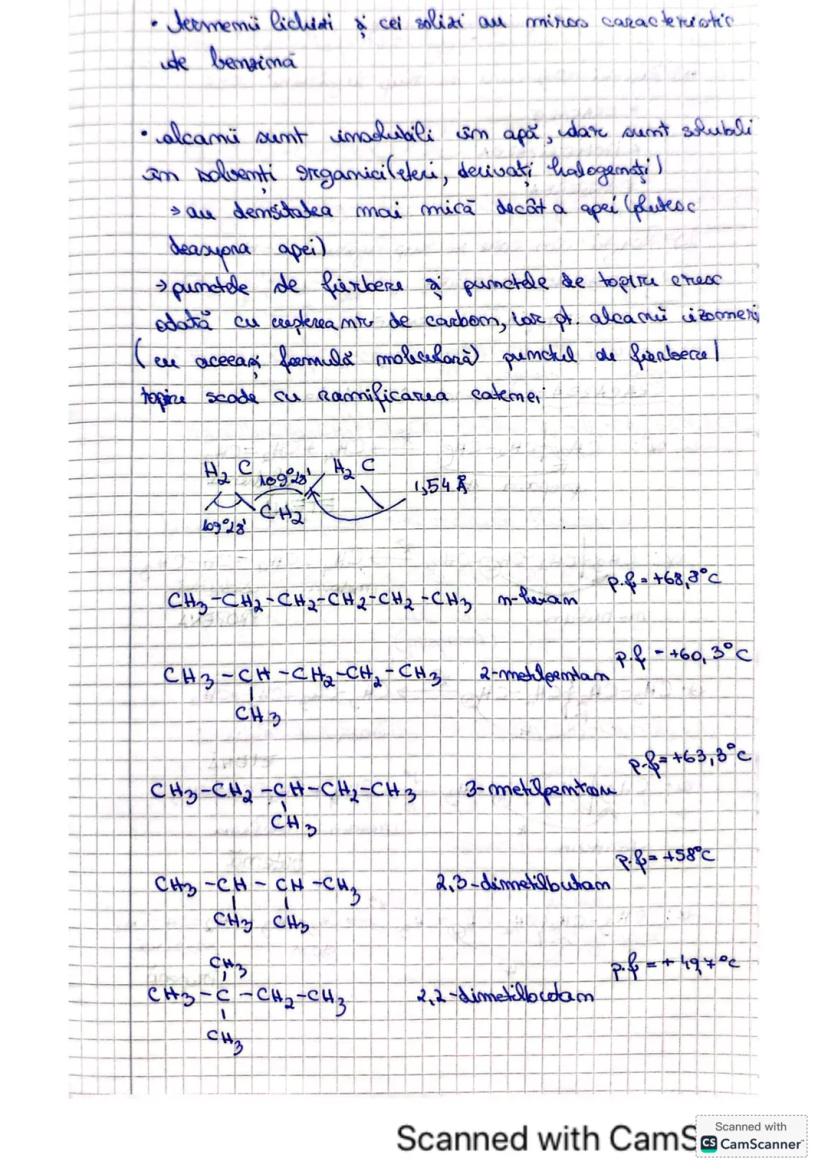 • Termenii lichizi și cei solizi au miros caracteristic
de benzină
• alcanii sunt insolubili în apă, dar sunt solubili
în solvenți organici (eteri, derivați halogenați)
→ au densitatea mai mică decât a apei (plutesc
deasupra apei)
→ punctele de fierbere și punctele de topire cresc
odată cu creșterea nr. de carbon, iar pt. alcanii izomeri
(cu aceeași formulă moleculară) punctul de fierbere/
topire scade cu ramificarea catenei
H₂C 109°28' H₂C
1,54 Å
109°28' CH₂
p.f = +68,3°C
CH₃-CH₂-CH₂-CH₂-CH₂-CH₃ n-hexan
p.f = +60,3°C
CH₃-CH-CH₂-CH₂-CH₃ 2-metilpentan
CH₃
p.f = +63,3°C
CH₃-CH₂-CH-CH₂-CH₃ 3-metilpentan
CH₃
p.f = +58°C
CH₃-CH-CH-CH₃ 2,3-dimetilbutan
CH₃ CH₃
CH₃ p.f = +49,7°C
CH₃-C-CH₂-CH₃ 2,2-dimetilbutan
CH₃
Scanned with CamS
Scanned with
CS CamScanner